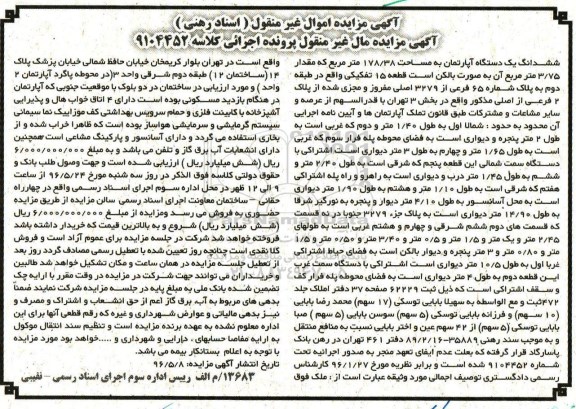 آگهی مزایده اموال غیر منقول ( اسناد رهنی )
آگهی مزایده مال غیر منقول پرونده اجرائی کلاسه ۹۱۰۴۴۵۲
ششدانگ یک دستگاه آپارتمان به مساحت ۱۷۸/۳۸ متر مربع که مقدار
۳/۷۵ متر مربع آن به صورت بالکن است قطعه ۱۵ تفکیکی واقع در طبقه
دوم به پلاک شماره ۶۵ فرعی از ۳۲۷۹ اصلی مفروز و مجزی شده از پلاک
۲ فرعی از اصلی مذکور واقع در بخش ۳ تهران با قدرالسهم از عرصه و
سایر مشاعات و مشترکات طبق قانون تملک آپارتمان ها و آیین نامه اجرایی
آن محدود به حدود : شمالا اول به طول ۱/۴۰ متر و دوم که غربی است به
طول ۲ متر پنجره و دیواری است به فضای محوطه پله فرار سوم که غربی
است به طول ۱/۶۵ متر و چهارم به طول ۳ متر دیواری است اشتراکی با
دستگاه سمت شمالی این قطعه پنجم که شرقی است به طول ۲/۴۰ متر و
ششم به طول ۱/۴۵ متر درب و دیواری است به راهرو و راه پله اشتراکی
هفتم که شرقی است به طول ۱/۱۰ متر و هشتم به طول ۱/۹۰ متر دیواری
است به محل آسانسور به طول ۴/۱۰ متر دیوار و پنجره به نورگیر شرقا
به طول ۱۴/۹۰ متر دیواری است به پلاک جزء ۳۲۷۹ جنوبا در ۹ قسمت
که قسمت های دوم ششم شرقی و چهارم و هشتم غربی است به طولهای
ایی قطعه دوم به طول ۴ متر دیواری است به فضای محوطه پله فرار کف
و سقف اشتراکی است که ذیل ثبت ۶۲۲۲۹ صفحه ۳۷ دفتر املاک جلد
۴۷۲ ثبت و مع الواسطه به سهیلا بابایی توسکی (۱۷ سهم) محمد رضا بابایی
(۱۰ سهم) و فرزانه بابایی توسکی (۵ سهم) سوسن بابایی (۵ سهم ) صبا
بابایی توسکی (۵ سهم) از ۴۲ سهم عین و اختر بابایی نسبت به منافع منتقل
و به موجب سند رهنی ۳۵۸۸۹-۸۹/۲/۱۶ دفتر ۴۶۱ تهران در رهن بانک
پاسارگاد قرار گرفته که بعلت عدم ایفای تعهد منجر به صدور اجرائیه تحت
شماره ۹۱۰۴۴۵۲ شده است و برابر نظریه مورخ ۹۶/۱/۲۷ کارشناس
رسمی دادگستری توصیف اجمالی مورد وثیقه عبارت است از : ملک فوق
واقع است در تهران بلوار کریمخان خیابان حافظ شمالی خیابان پزشک پلاک
۱۴ (ساختمان ۱۲) طبقه دوم شرقی واحد ۳ (در محوطه پاگرد آپارتمان ۲
واحد ) و مورد ارزیابی در ساختمان در دو بلوک با موقعیت جنوبی که آپارتمان
در هنگام بازدید مسکونی بوده است دارای ۴ اتاق خواب هال و پذیرایی
آشپزخانه با کابینت فلزی و حمام سرویس بهداشتی کف موزاییک نما سیمانی
سیستم گرمایشی و سرمایشی هواساز بوده است که ظاهرا خراب شده و از
بخاری استفاده می گردد و دارای آسانسور و پارکینگ مشاعی است همچنین
دارای انشعابات آب برق گاز و تلفن می باشد و به مبلغ ۶/۰۰۰/۰۰۰/۰۰۰
ریال (شش میلیارد ریال ) ارزیابی شده است و جهت وصول طلب بانک و
حقوق دولتی کلاسه فوق الذکر در روز سه شنبه مورخ ۹۶/۵/۲۴ از ساعت
۹ الی ۱۲ ظهر در محل اداره سوم اجرای اسناد رسمی واقع در چهارراه
حقانی – ساختمان معاونت اجرای اسناد رسمی سالن مزایده از طریق مزایده
حضوری به فروش می رسد ومزایده از مبلغ ۶/۰۰۰/۰۰۰/۰۰۰ ریال
(شش میلیارد ریال) شروع و به بالاترین قیمت که خریدار داشته باشد
فروخته خواهد شد شرکت در جلسه مزایده برای عموم آزاد است و فروش
کلا نقدی است چنانچه روز تعیین شده با تعطیل رسمی مصادف گردد روز بعد
از تعطیل جلسه مزایده در همان ساعت و مکان تشکیل خواهد شد طالبین
و خریداران می توانند جهت شرکت در مزایده در وقت مقرر با ارایه چک
تضمین شده بانک ملی به مبلغ پایه در جلسه مزایده شرکت نمایند ضمناً
بدهی های مربوط به آب، برق گاز اعم از حق انشعاب و اشتراک و مصرف و
نیز بدهی مالیاتی و عوارض شهرداری و غیره که رقم قطعی آنها برای این
اداره معلوم نشده به عهده برنده مزایده است و تنظیم سند انتقال موکول
به ارایه مفاصا حسابهای ، دارایی و شهرداری و .....خواهد بود مورد مزایده
با توجه به اعلام بستانکار بیمه می باشد.
تاریخ انتشار آگهی مزایده: ۹۶/۵/۸
۱۳۶۸۳/م الف رییس اداره سوم اجرای اسناد رسمی – نقیبی